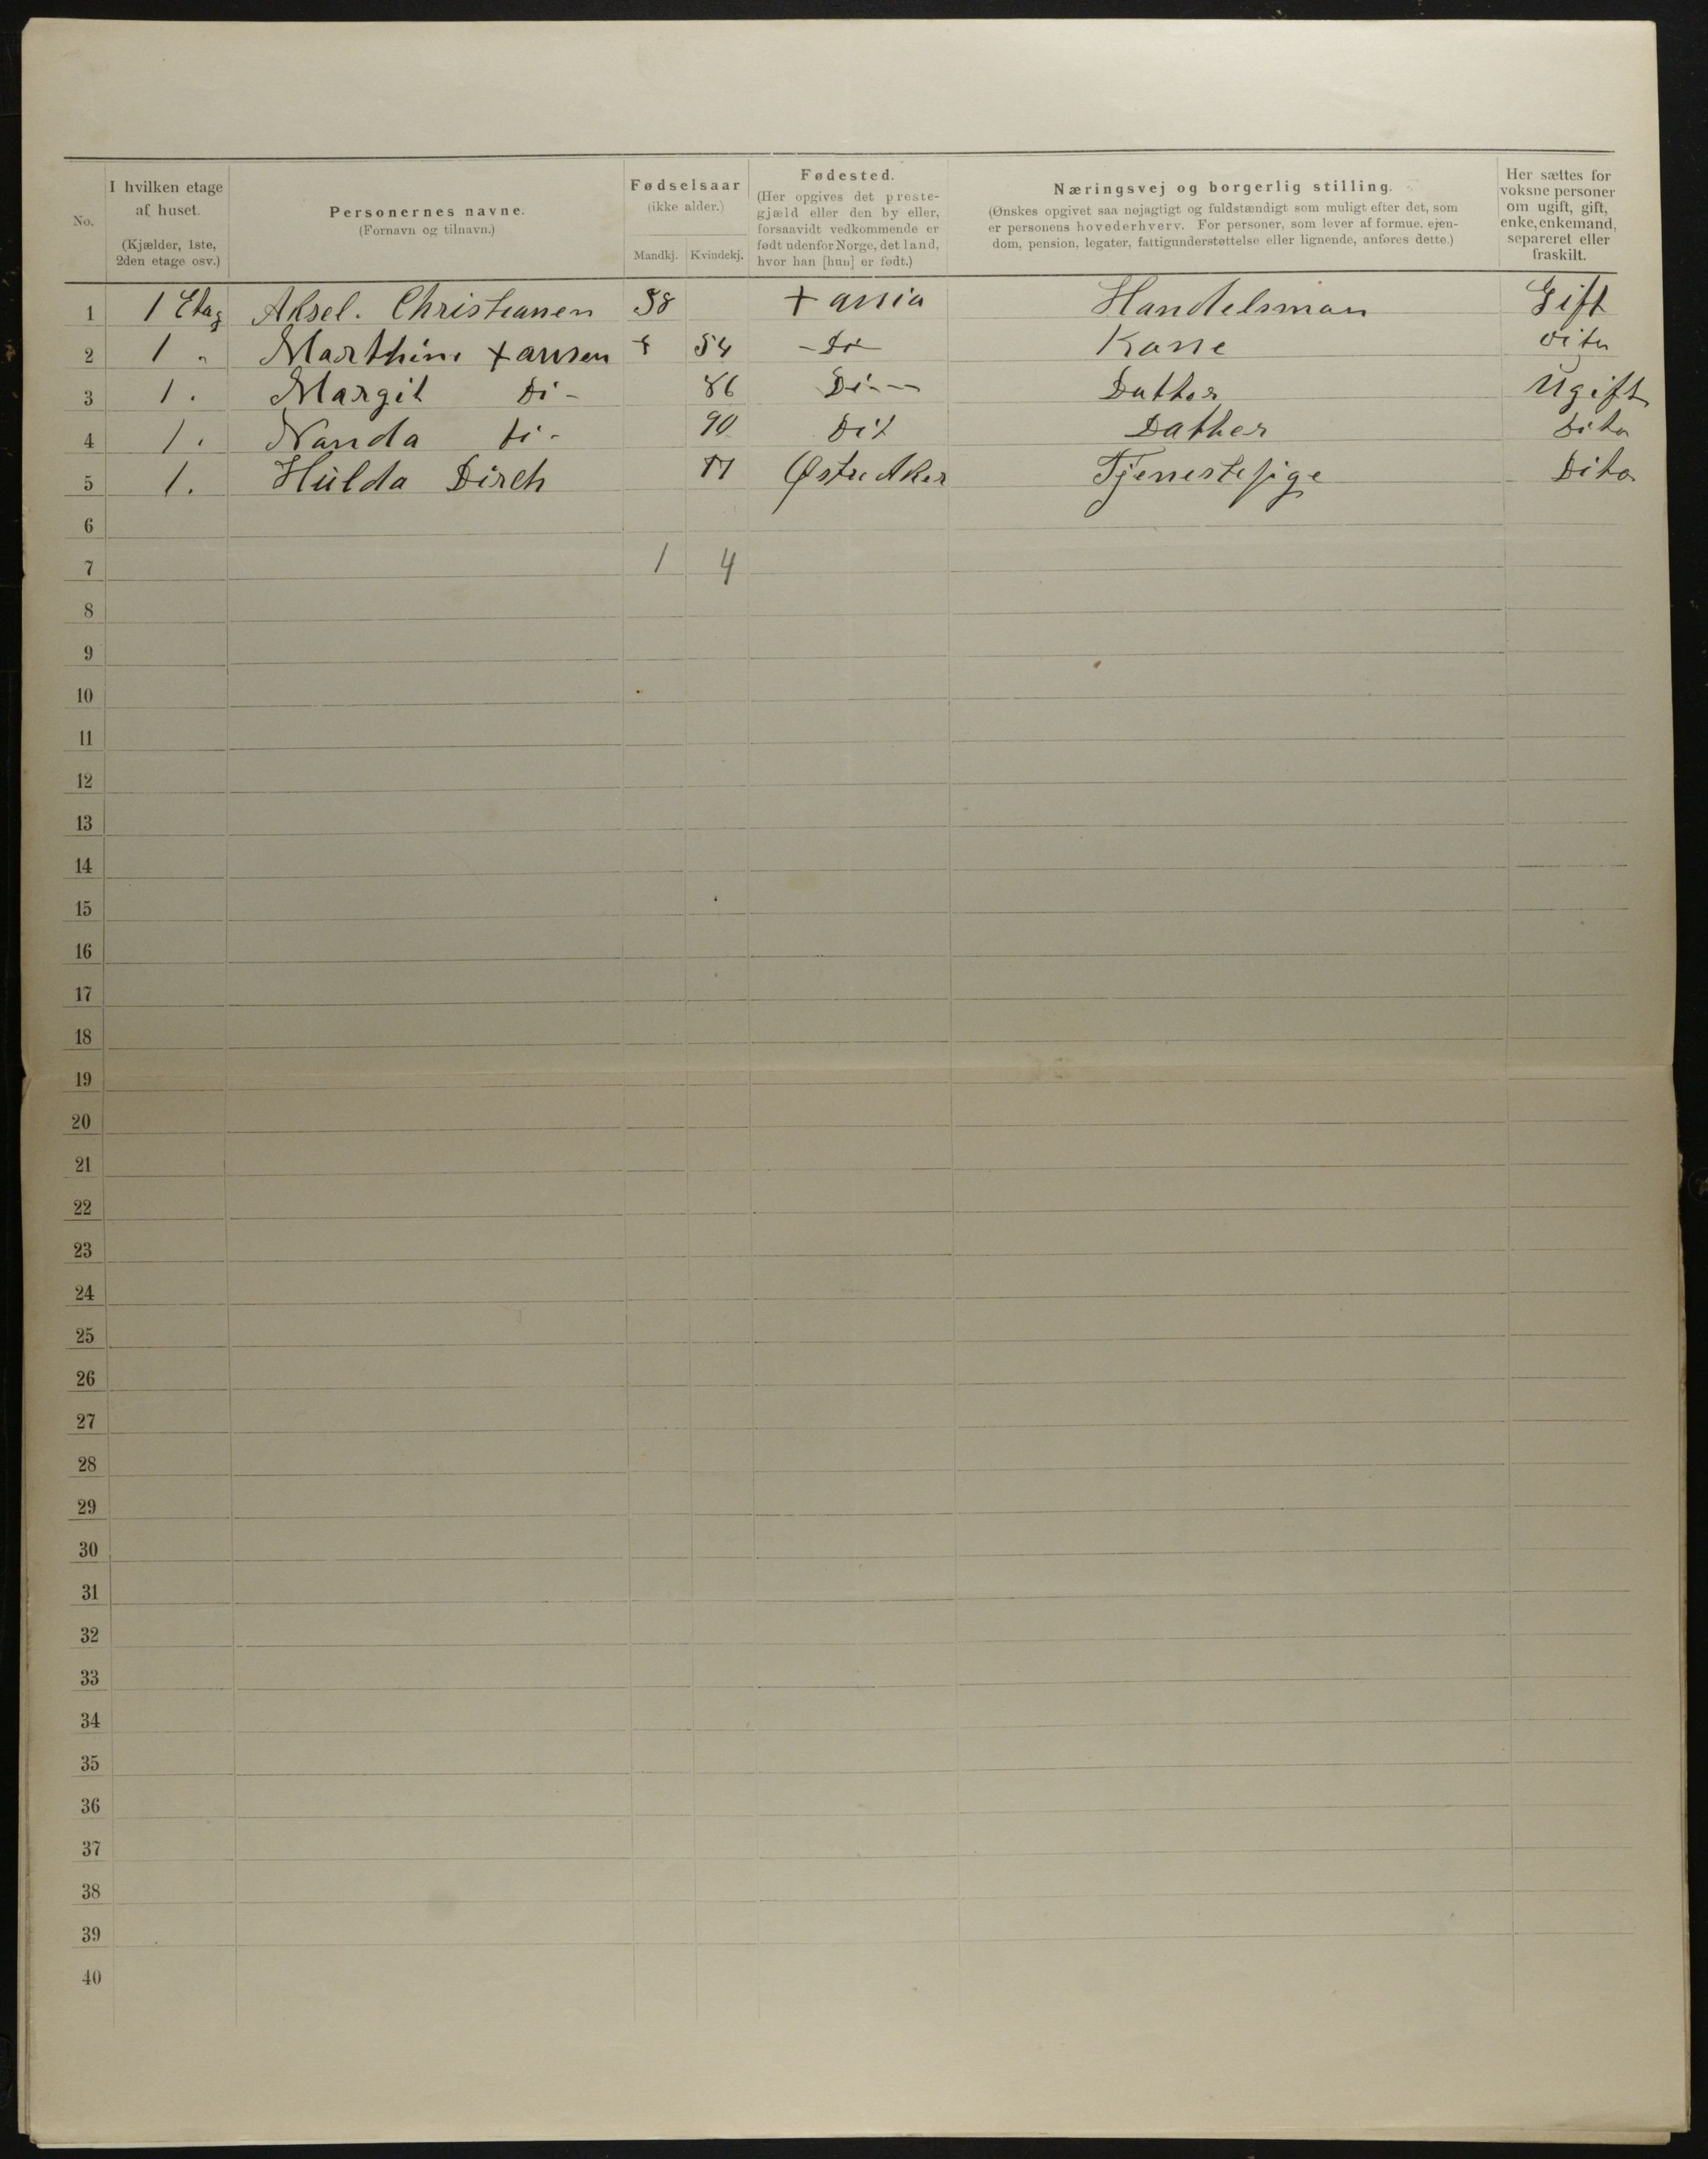 No.
I hvilken etage af huset. (Kjælder, 1ste, 2den etage osv.)
Personernes navne. (Fornavn og tilnavn.)
Fødselsaar (ikke alder.)
Mandkj. Kvindekj.
Fødested. (Her opgives det prestegjæld eller den by eller, forsaavidt vedkommende er født udenfor Norge, det land, hvor han [hun] er født.)
Næringsvej og borgerlig stilling. (Ønskes opgivet saa nøjagtigt og fuldstændigt som muligt efter det, som er personens hovederhverv. For personer, som lever af formue, ejendom, pension, legater, fattigunderstøttelse eller lignende, anføres dette.)
Her sættes for voksne personer om ugift, gift, enke, enkemand, separeret eller fraskilt.
1 1 Etag Aksel. Christiansen 58 + ania Handelsman Gift
2 1 " Marthine + ansen 54 - Do - Kone Dito
3 1. Margit Di - 86 Di - - Datter Ugift
4 1. Nanda Di - 90 Dit Dather Dito
5 1. Hulda Dirch 77 Østre Aker Tjenestepige Dito
6
7 1 4
8
9
10
11
12
13
14
15
16
17
18
19
20
21
22
23
24
25
26
27
28
29
30
31
32
33
34
35
36
37
38
39
40